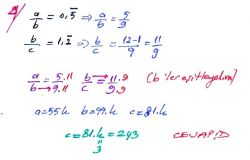 a/b = 0,5̅ ⇒ a/b = 5/9
b/c = 1,2̅ ⇒ b/c = 12-1/9 = 11/9
a/b = 5.11/9.11 b/c = 11.9/9.9 (b'ler eşitleyelim)
a=55k b=99.k c=81.k
c=81.k=243 CEVAP:D
3